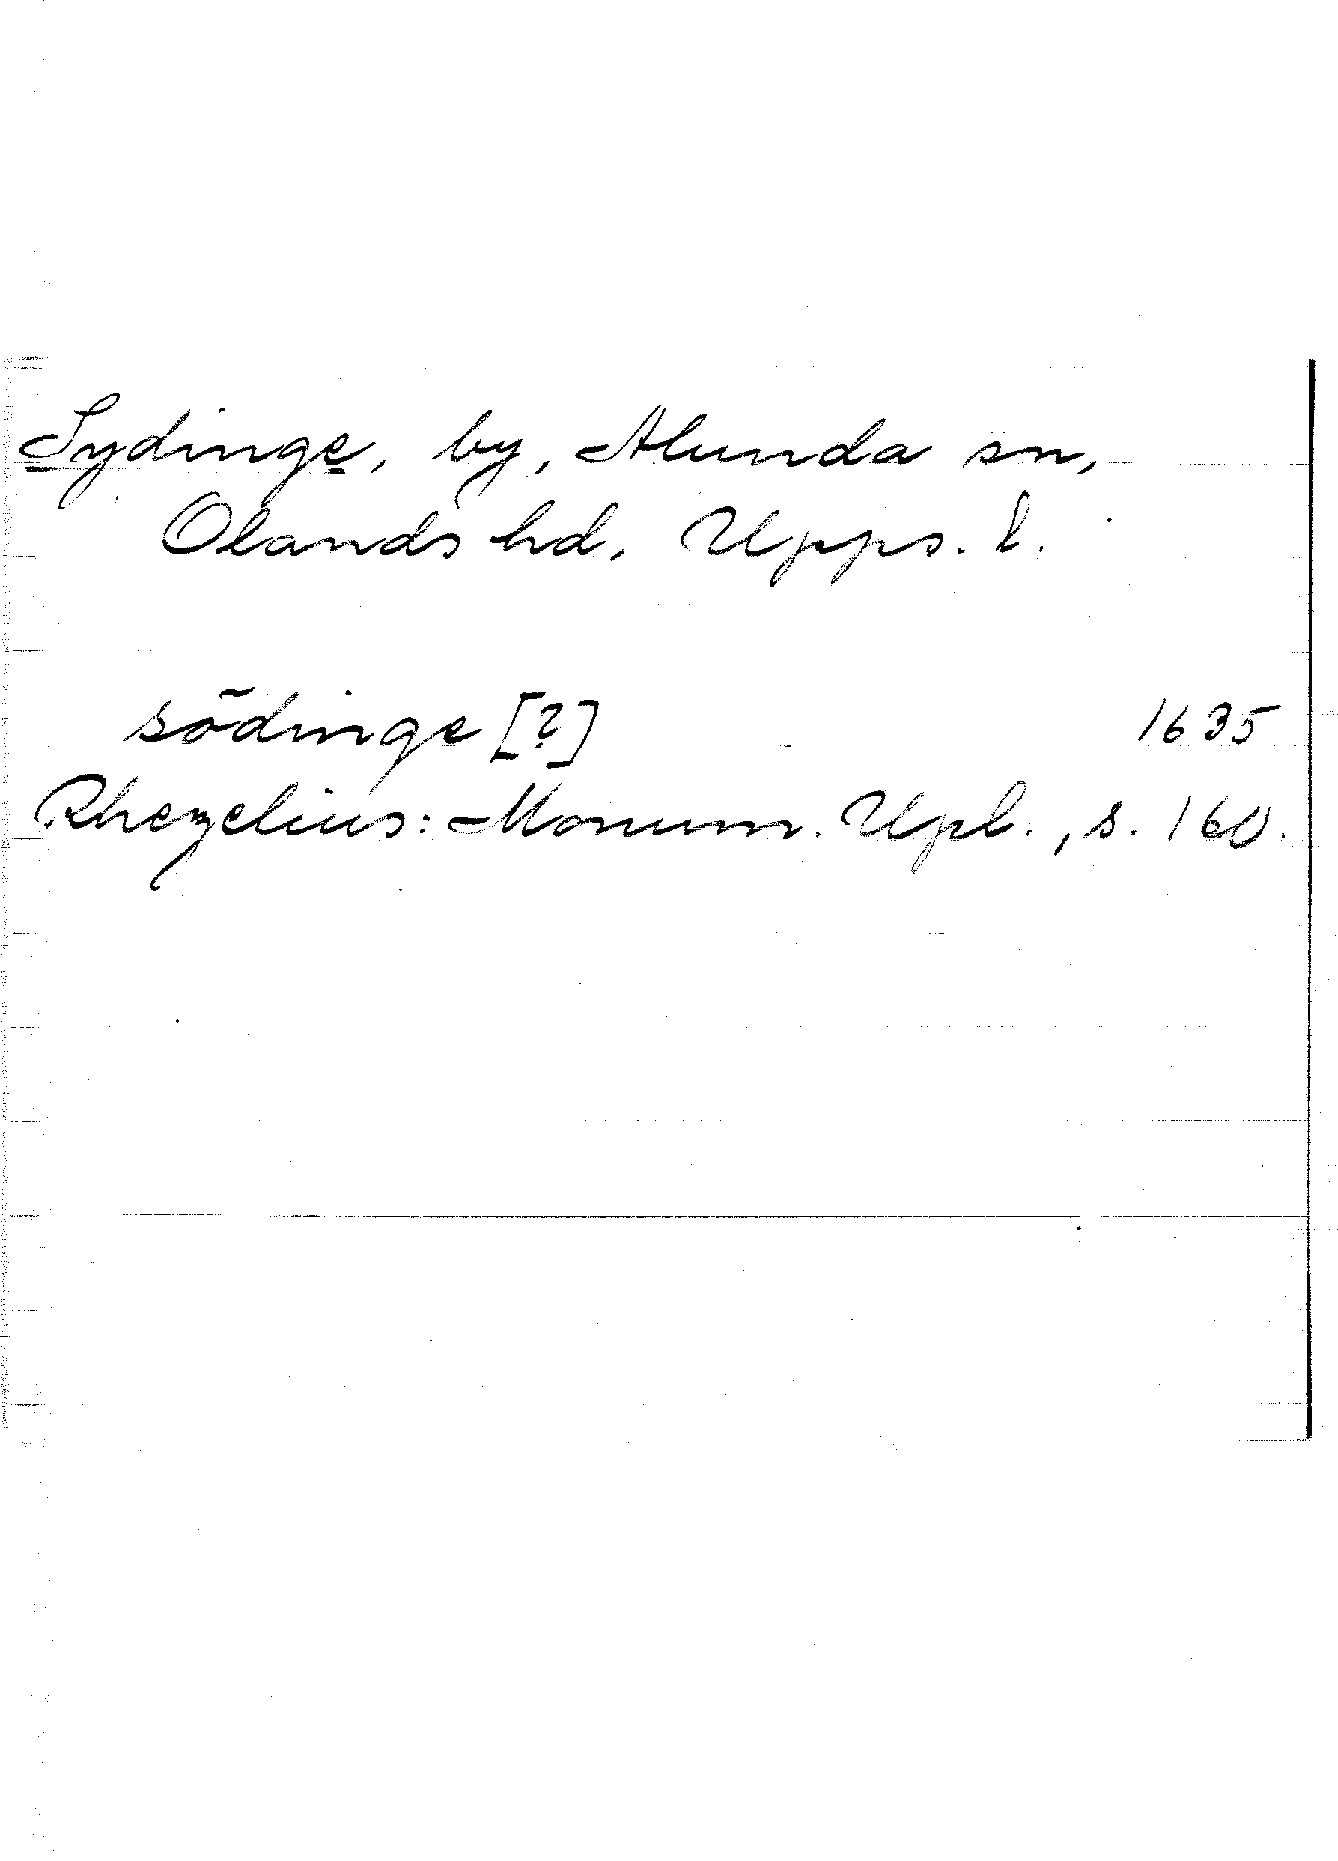 Sydinge, by, Alunda sn,
Olands hd, Upps. l.
södinge [?] 1635
Rhezelius: Monum. Upl., s. 160.